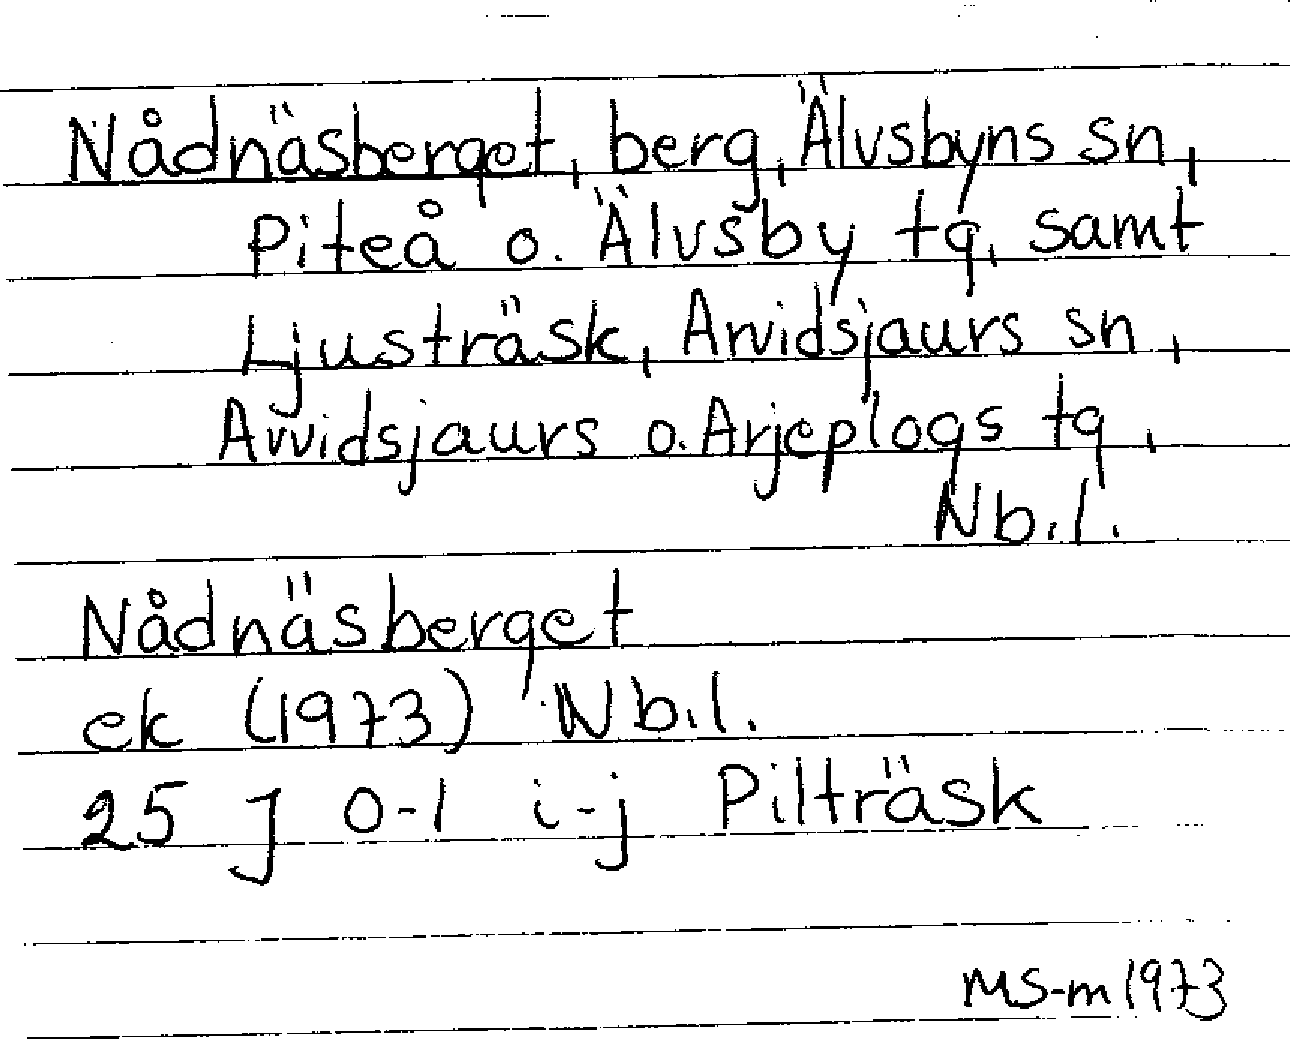 Nådnäsberget, berg, Älvsbyns sn,
Piteå o. Älvsby tg, samt
Ljusträsk, Arvidsjaurs sn,
Arvidsjaurs o. Arjeplogs tg,
Nb.l.
Nådnäsberget
ek (1973) Nb.l.
25 J 0-1 i-j Pilträsk
MS-m 1973